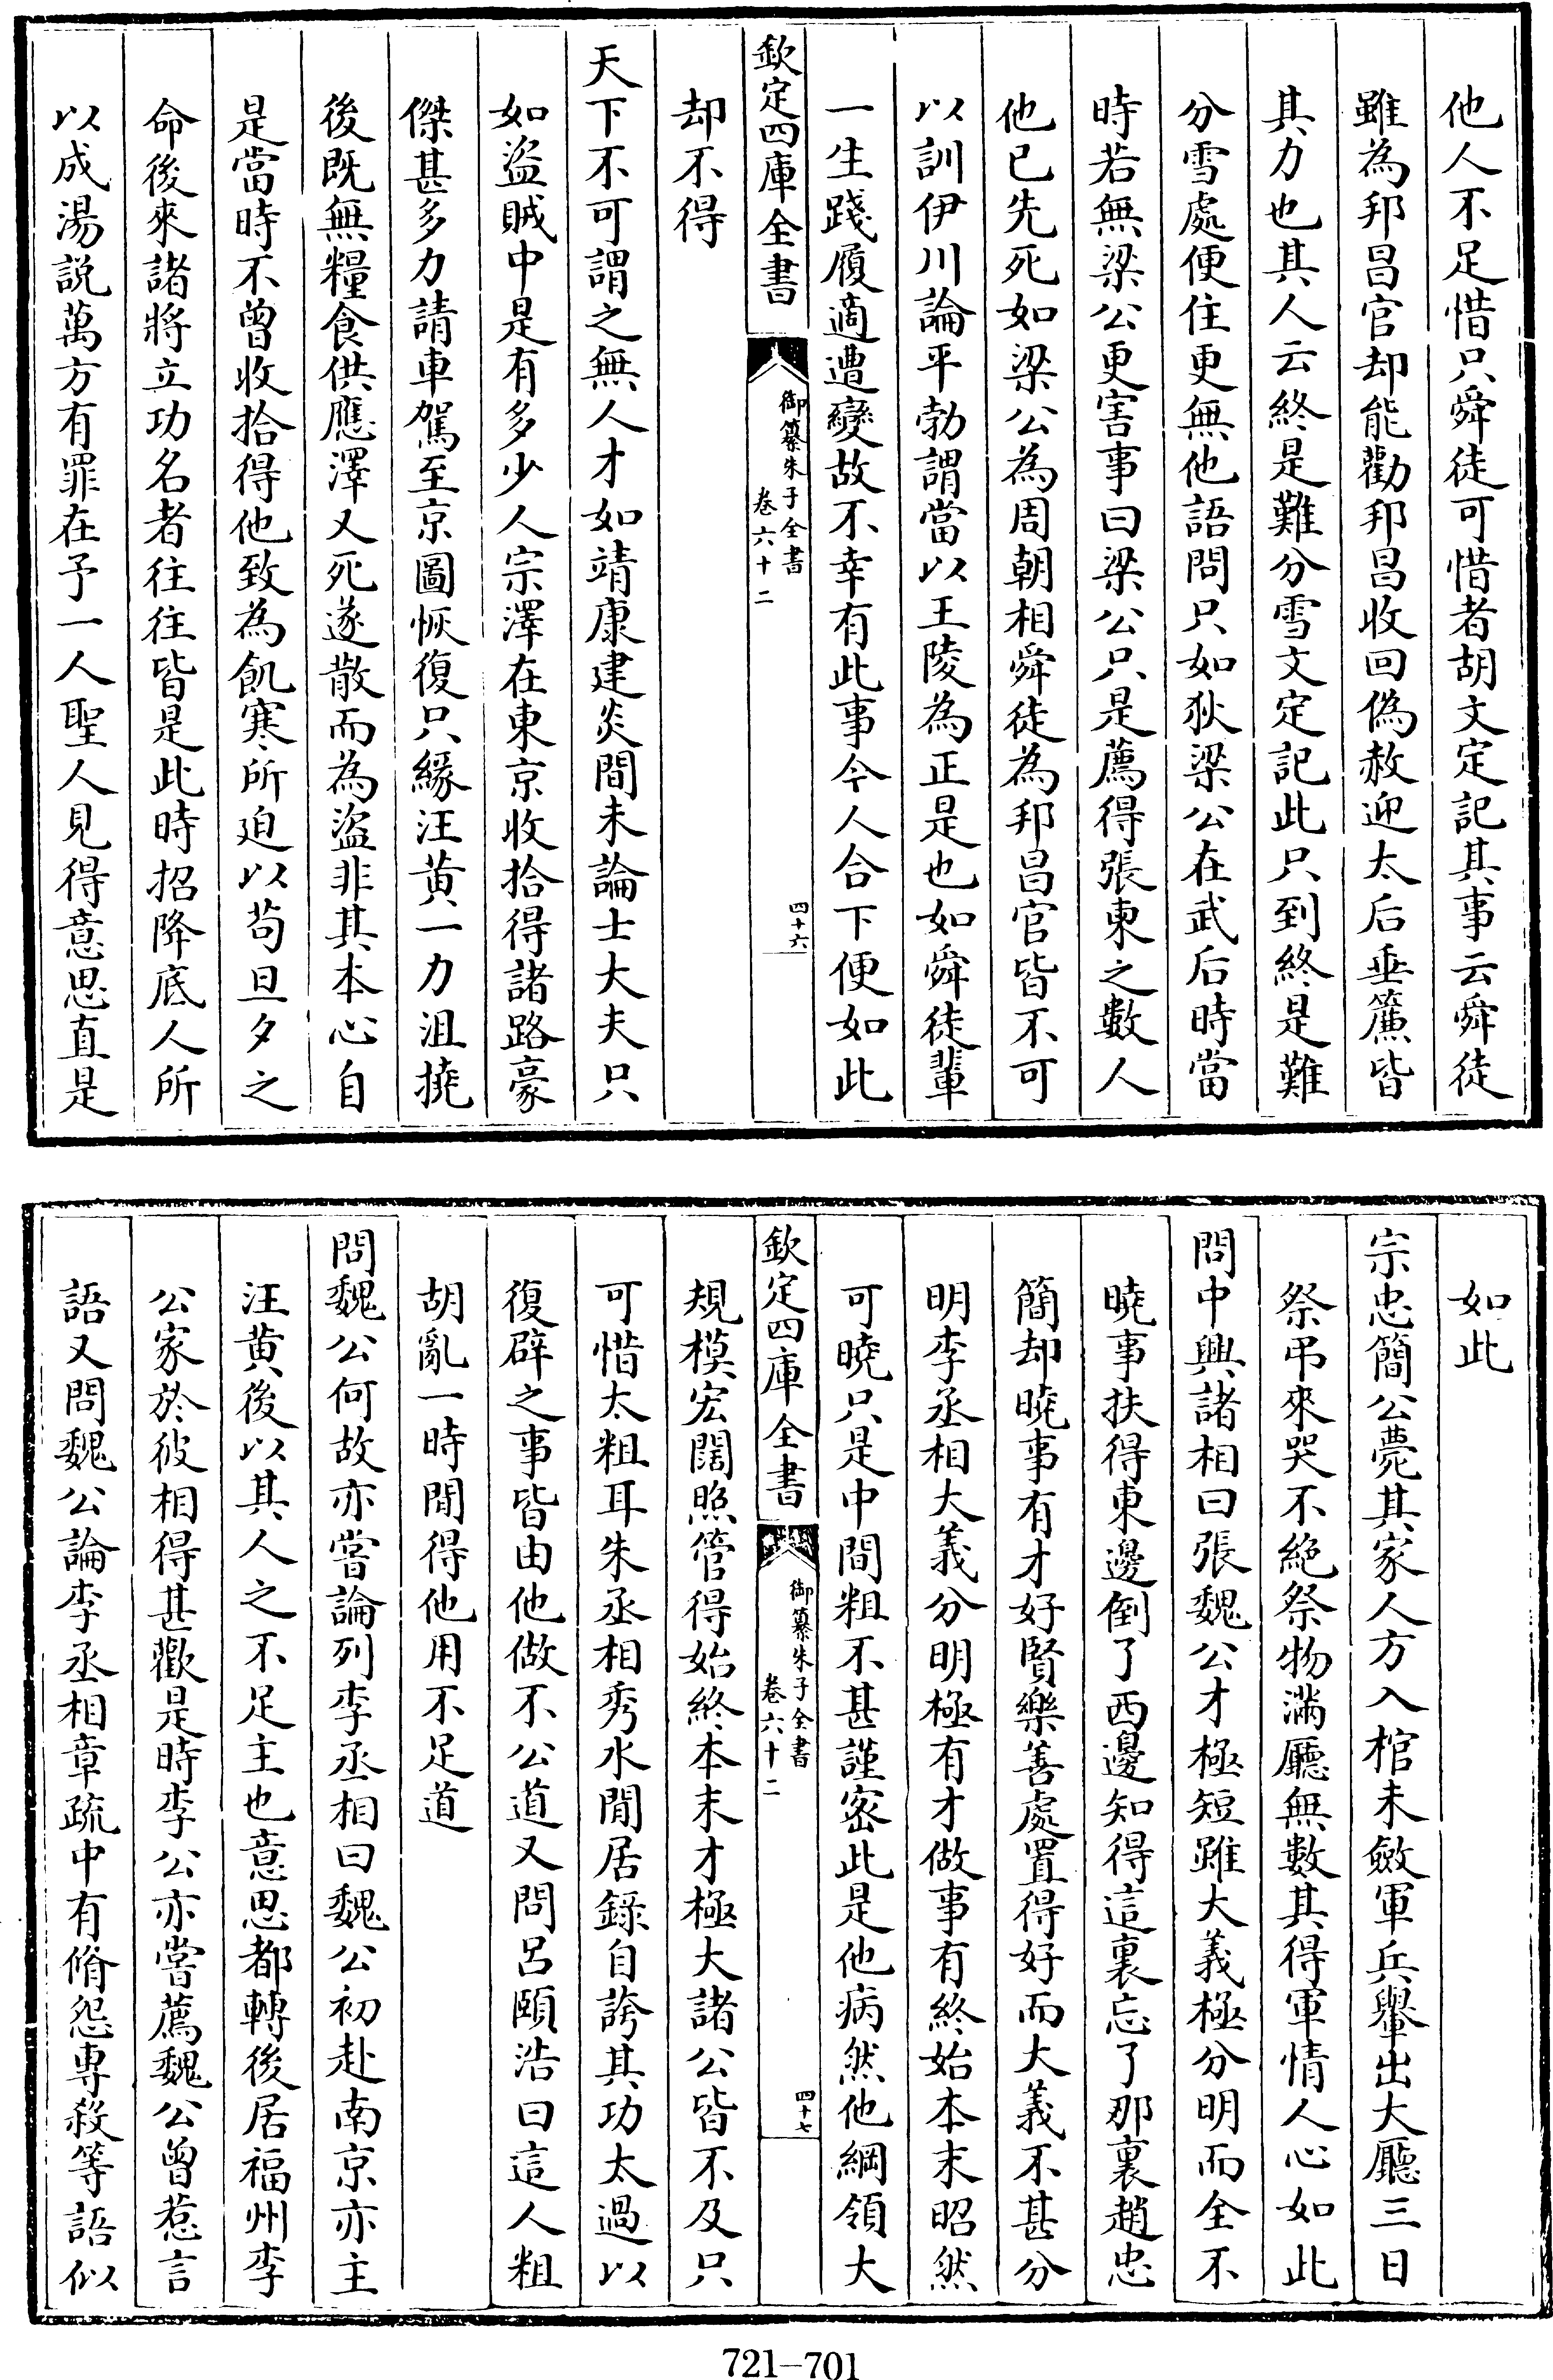 他人不足惜只舜徒可惜者胡文定記其事云舜徒
雖為邦昌官却能勸邦昌收回偽赦迎太后垂簾皆
其力也其人云終是難分雪文定記此只到終是難
分雪處便住更無他語問只如狄梁公在武后時當
時若無梁公更害事曰梁公只是薦得張柬之數人
他已先死如梁公為周朝相舜徒為邦昌官皆不可
以訓伊川論平勃謂當以王陵為正是也如舜徒輩
一生踐履適遭變故不幸有此事今人合下便如此
欽定四庫全書
御纂朱子全書
卷六十二
四十六
却不得
天下不可謂之無人才如靖康建炎間未論士大夫只
如盜賊中是有多少人宗澤在東京收拾得諸路豪
傑甚多力請車駕至京圖恢復只緣汪黃一力沮撓
後既無糧食供應澤又死遂散而為盜非其本心自
是當時不曾收拾得他致為飢寒所迫以茍旦夕之
命後來諸將立功名者往往皆是此時招降底人所
以成湯説萬方有罪在予一人聖人見得意思直是
如此
宗忠簡公薨其家人方入棺未斂軍兵轝出大廳三日
祭弔來哭不絶祭物滿廳無數其得軍情人心如此
問中興諸相曰張魏公才極短雖大義極分明而全不
曉事扶得東邊倒了西邊知得這裏忘了那裏趙忠
簡却曉事有才好賢樂善處置得好而大義不甚分
明李丞相大義分明極有才做事有終始本末昭然
可曉只是中間粗不甚謹密此是他病然他綱領大
欽定四庫全書
御纂朱子全書
卷六十二
四十七
規模宏闊照管得始終本末才極大諸公皆不及只
可惜太粗耳朱丞相秀水閒居錄自誇其功太過以
復辟之事皆由他做不公道又問呂頤浩曰這人粗
胡亂一時間得他用不足道
問魏公何故亦嘗論列李丞相曰魏公初赴南京亦主
汪黃後以其人之不足主也意思都轉後居福州李
公家於彼相得甚歡是時李公亦嘗薦魏公曾惹言
語又問魏公論李丞相章疏中有脩怨專殺等語似
721-701